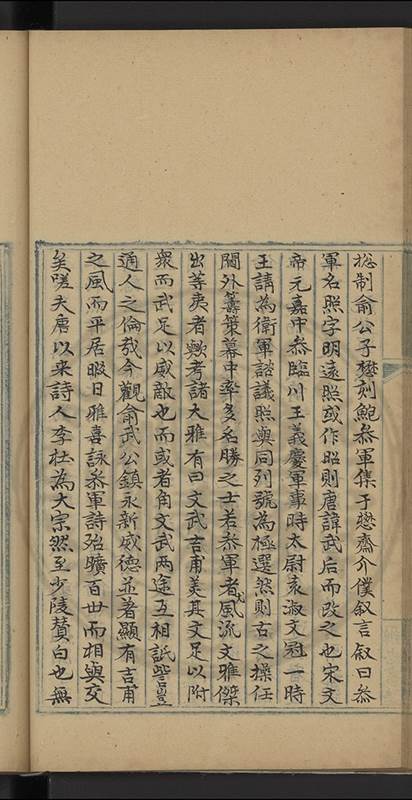 揔制俞公子懋刻鮑叅軍集于懋齋介僕叙言叙曰叅
軍名照字明遠照或作昭則唐諱武后而改之也宋文
帝元嘉中叅臨川王義慶軍事時太尉袁淑文冠一時
王請為衛軍諮議照與同列號為極選然則古之操任
閫外籌策幕中率多名勝之士若叅軍者尤風流文雅傑
出等夷者歟考諸大雅有曰文武吉甫美其文足以附
衆而武足以威敵也而或者角文武兩途互相詆訾豈
通人之倫哉今觀俞武公鎮永新威德並著顯有吉甫
之風而平居暇日雅喜詠叅軍詩殆曠百世而相與交
矣嗟夫唐以来詩人李杜為大宗然至少陵賛白也無